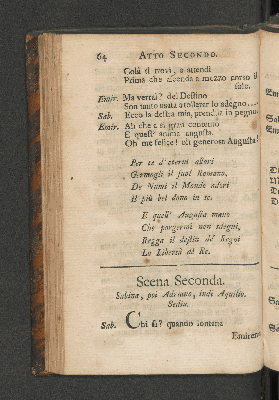 64 ATTO SECONDO.
Colà ti trova, e attendi
Prima che ascenda a mezzo corso il
sole.
Emir. Ma verrai? del Destino
Son tanto usata a tollerar lo sdegno....
Sab. Ecco la destra mia, prendila in pegno.
Emir. Ah che a sì gran contento
È quest' anima angusta.
Oh me felice! oh generosa Augusta!
Per te d' eterni allori
Germogli il suol Romano,
De' Numi il Mondo adori
Il più bel dono in te.
E quell' Augusta mano
Che porgermi non sdegni,
Regga il destin de' Regni
La Libertà dei Re.
Scena Seconda.
Sabina, poi Adriano, indi Aquilio.
Sab. Chi sa? quando lontana
Emirena